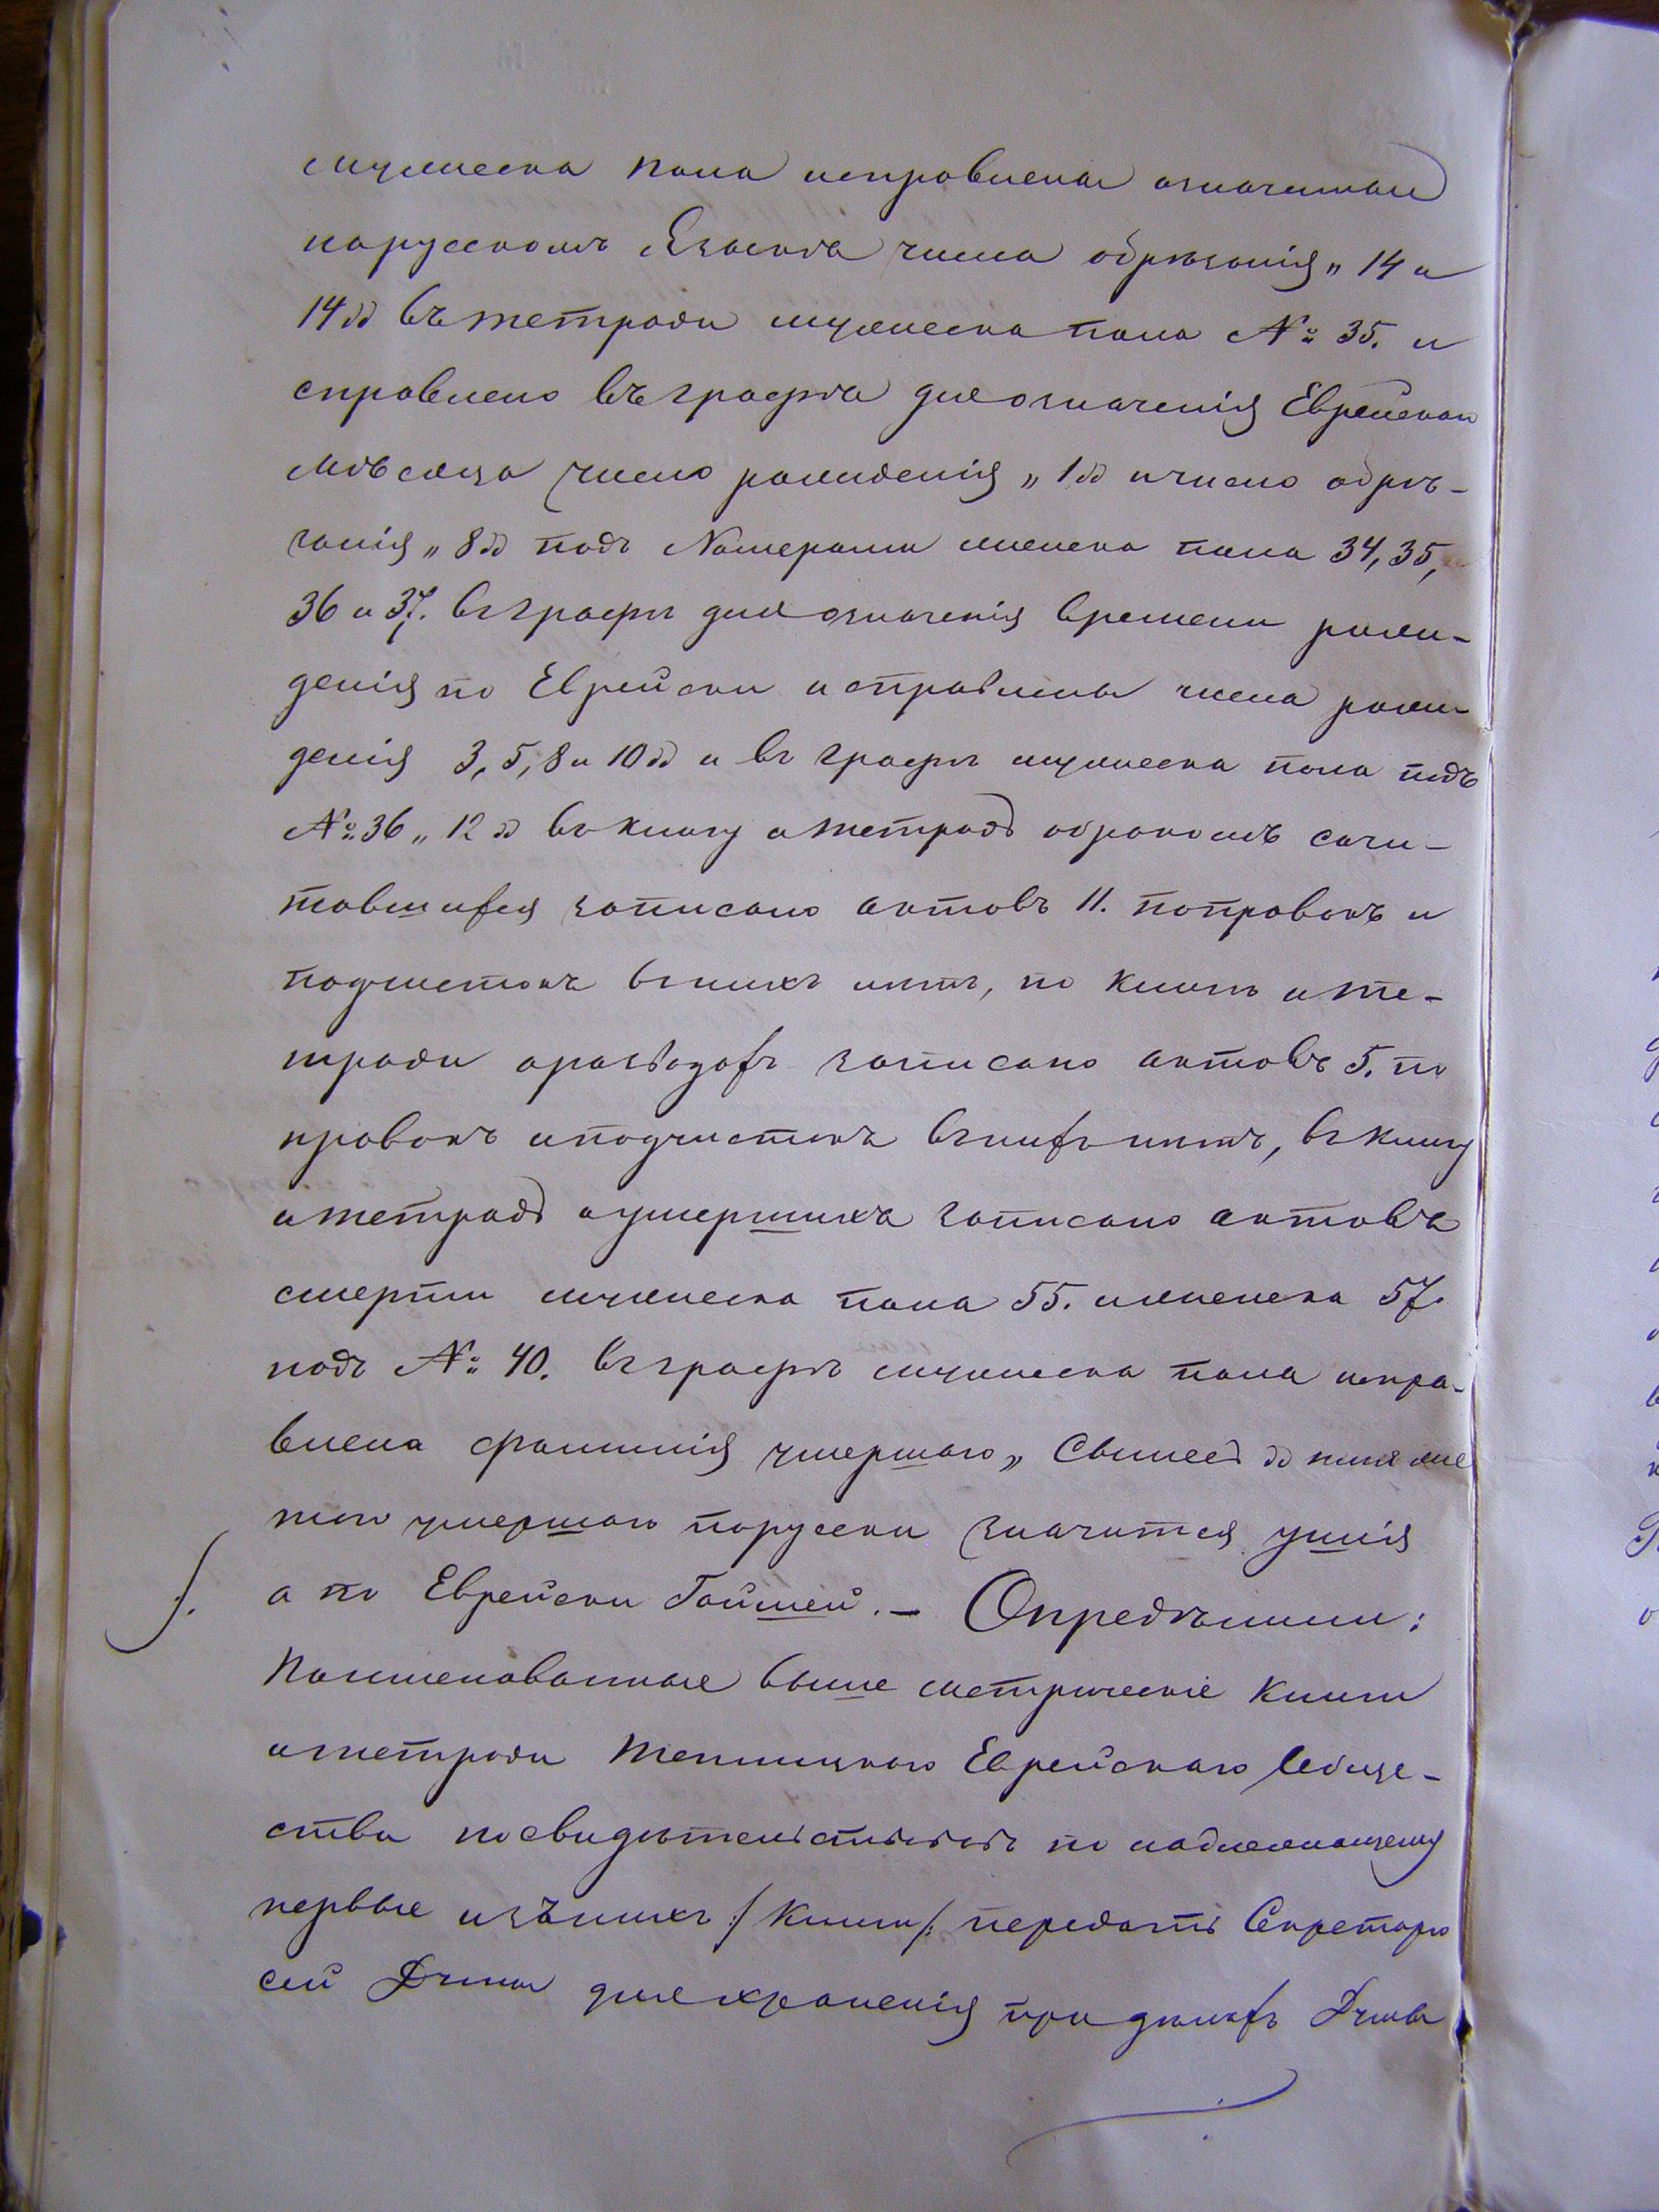 мужеска пола исправлена означенная
нарусскомъ Языкѣ числа обрѣзанія „14 и
14“ въ тетради мужеска пола № 35. и
справлено въ графѣ для означенія Еврейскаго
мѣсяца число рожденія „1“ и число обрѣ-
занія „8“ подъ Номерами женска пола 34, 35,
36 и 37. въ графѣ для означенія времени рож-
денія по Еврейски исправлены числа рож-
денія 3, 5, 8 и 10“ и въ графѣ мужеска пола подъ
№ 36 „12“ въ книгу и тетрадь о бракомъ соче-
тавшихся записано актовъ 11. поправокъ и
подчистокъ въ нихъ нѣтъ, по книгѣ и те-
тради о разводахъ записано актовъ 5. по
правокъ и подчистокъ въ нихъ нѣтъ, въ книгу
и тетрадь о умершихъ записано актовъ
смерти мужеска пола 55. и женска 57.
подъ № 40. въ графѣ мужеска пола испра-
влена фамилія умершаго „
умершаго порусски значится Ушія
а по Еврейски Гойшей. — Опредѣлили:
Поименованные выше метрическіе книги
и тетради Теплицкаго Еврейскаго Обще-
ства по надлежащему
первые изъ нихъ /: книги :/ передать Секретарю
сей Думы для храненія при дѣлахъ Думы